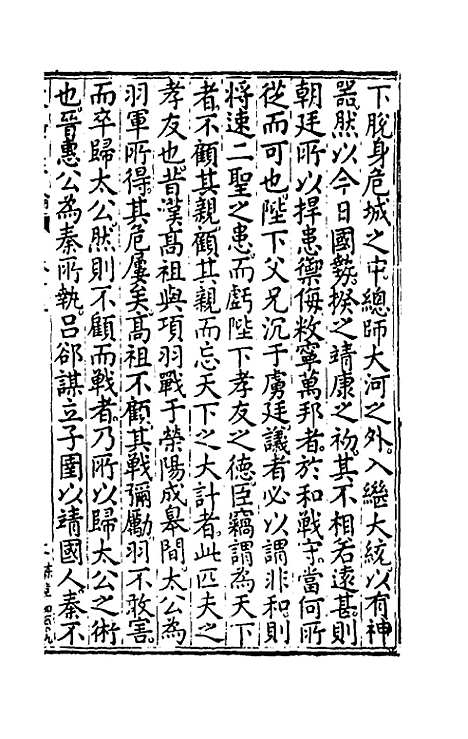 下脫身危城之中總師大河之外入繼大統以有神
器然以今日國勢揆之靖康之初其不相若遠甚則
朝廷所以捍患禦侮敉寧萬邦者於和戰守當何所
從而可也陛下父兄沉于虜廷議者必以謂非和則
将速二聖之患而虧陛下孝友之德臣竊謂為天下
者不顧其親顧其親而忘天下之大計者此匹夫之
孝友也昔漢高祖與項羽戰于榮陽成皋間太公為
羽軍所得其危屢矣高祖不顧其戰彌勵羽不敢害
而卒歸太公然則不顧而戰者乃所以歸太公之術
也晉惠公為秦所執呂郤謀立子圉以靖國人秦不